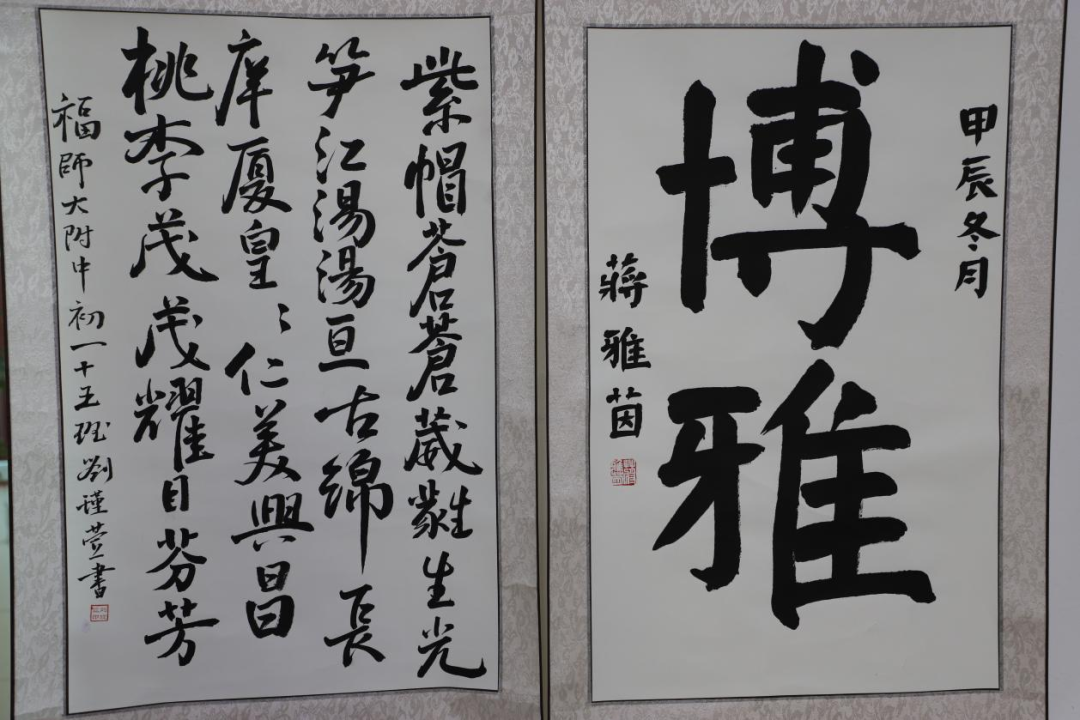 甲辰冬月
博雅
蔣雅茵
紫帽蒼蒼葳蕤生光
笋江湯湯亘古綿長
庠廈皇〻仁美興昌
桃李茂茂耀目芬芳
福師大附中初一十五班劉瑾萱書